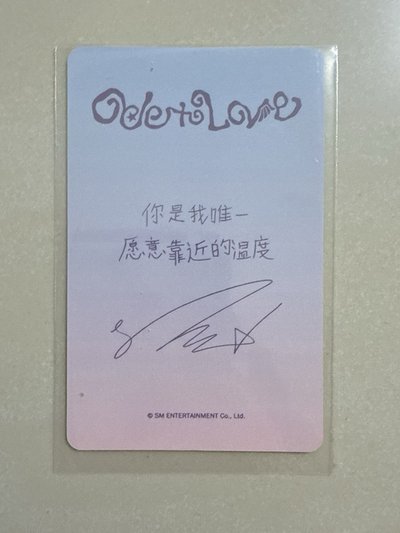 Ode to Love
你是我唯一
愿意靠近的温度
© SM ENTERTAINMENT Co., Ltd.